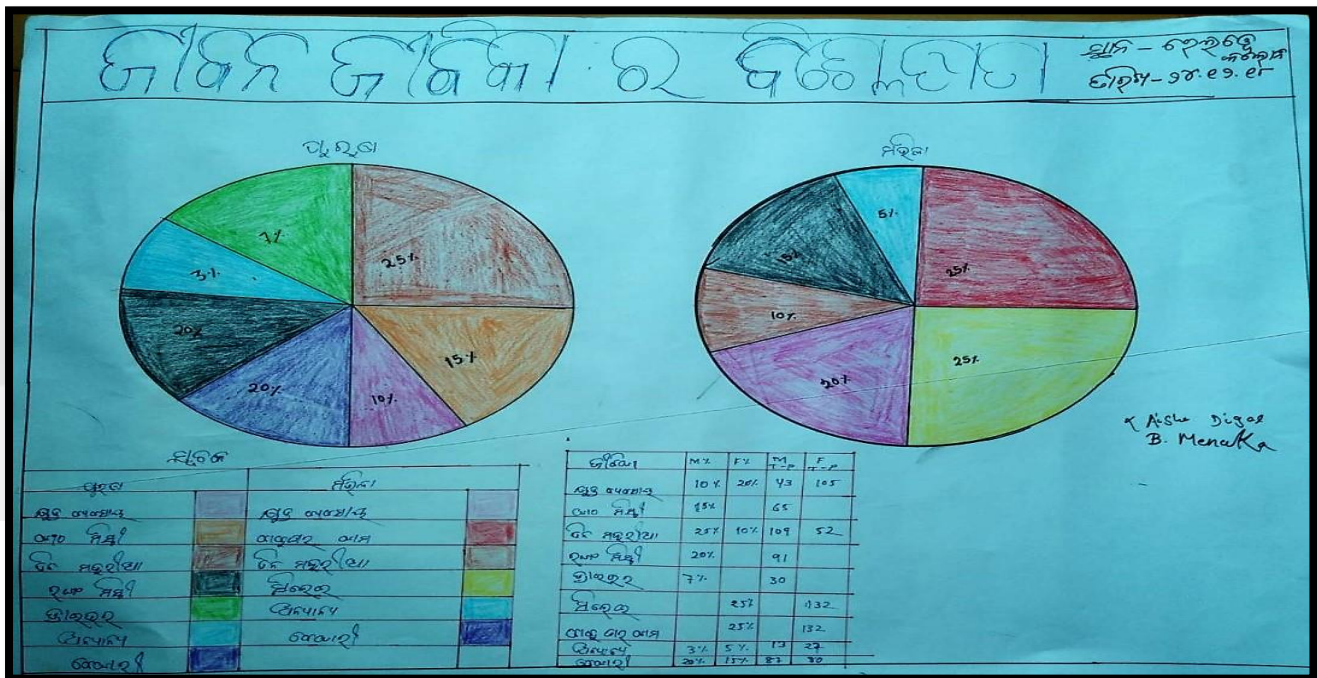 ଜୀବନ ଜୀବିକା ର ବିଶ୍ଳେଷଣ
ସ୍ଥାନ - ରେଲୱେ
ତାରିଖ - ୨୪.୧୨.୧୮
ପୁରୁଷ
ମହିଳା
7%
25%
3%
20%
15%
20%
10%
5%
25%
15%
10%
20%
25%
Aisha Digal
B. Menaka
ସୂଚକ
ପୁରୁଷ ମହିଳା
କ୍ଷୁଦ୍ର ବ୍ୟବସାୟ କ୍ଷୁଦ୍ର ବ୍ୟବସାୟ
କାଠ ମିସ୍ତ୍ରୀ ବାବୁଘର କାମ
ଦିନ ମଜୁରୀଆ ଦିନ ମଜୁରୀଆ
ରାଜ ମିସ୍ତ୍ରୀ ସିଲେଇ
ଡ୍ରାଇଭର ଅନ୍ୟାନ୍ୟ
ଅନ୍ୟାନ୍ୟ ବେକାରୀ
ବେକାରୀ
ଜୀବିକା M% F% M T-P F T-P
କ୍ଷୁଦ୍ର ବ୍ୟବସାୟ 10% 20% 43 105
କାଠ ମିସ୍ତ୍ରୀ 15% 65
ଦିନ ମଜୁରୀଆ 25% 10% 109 52
ରାଜ ମିସ୍ତ୍ରୀ 20% 91
ଡ୍ରାଇଭର 7% 30
ସିଲେଇ 25% 132
ବାବୁ ଘର କାମ 25% 132
ଅନ୍ୟାନ୍ୟ 3% 5% 13 27
ବେକାରୀ 20% 15% 87 80